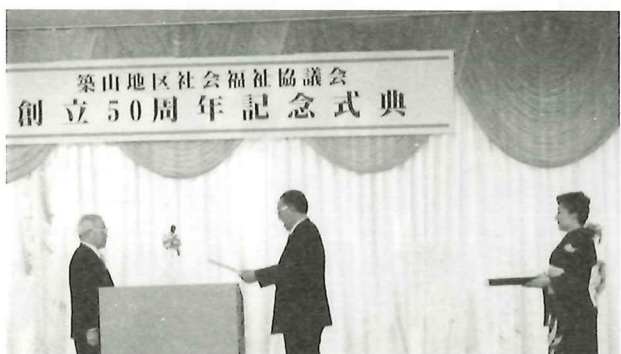 築山地区社会福祉協議会
創立50周年記念式典